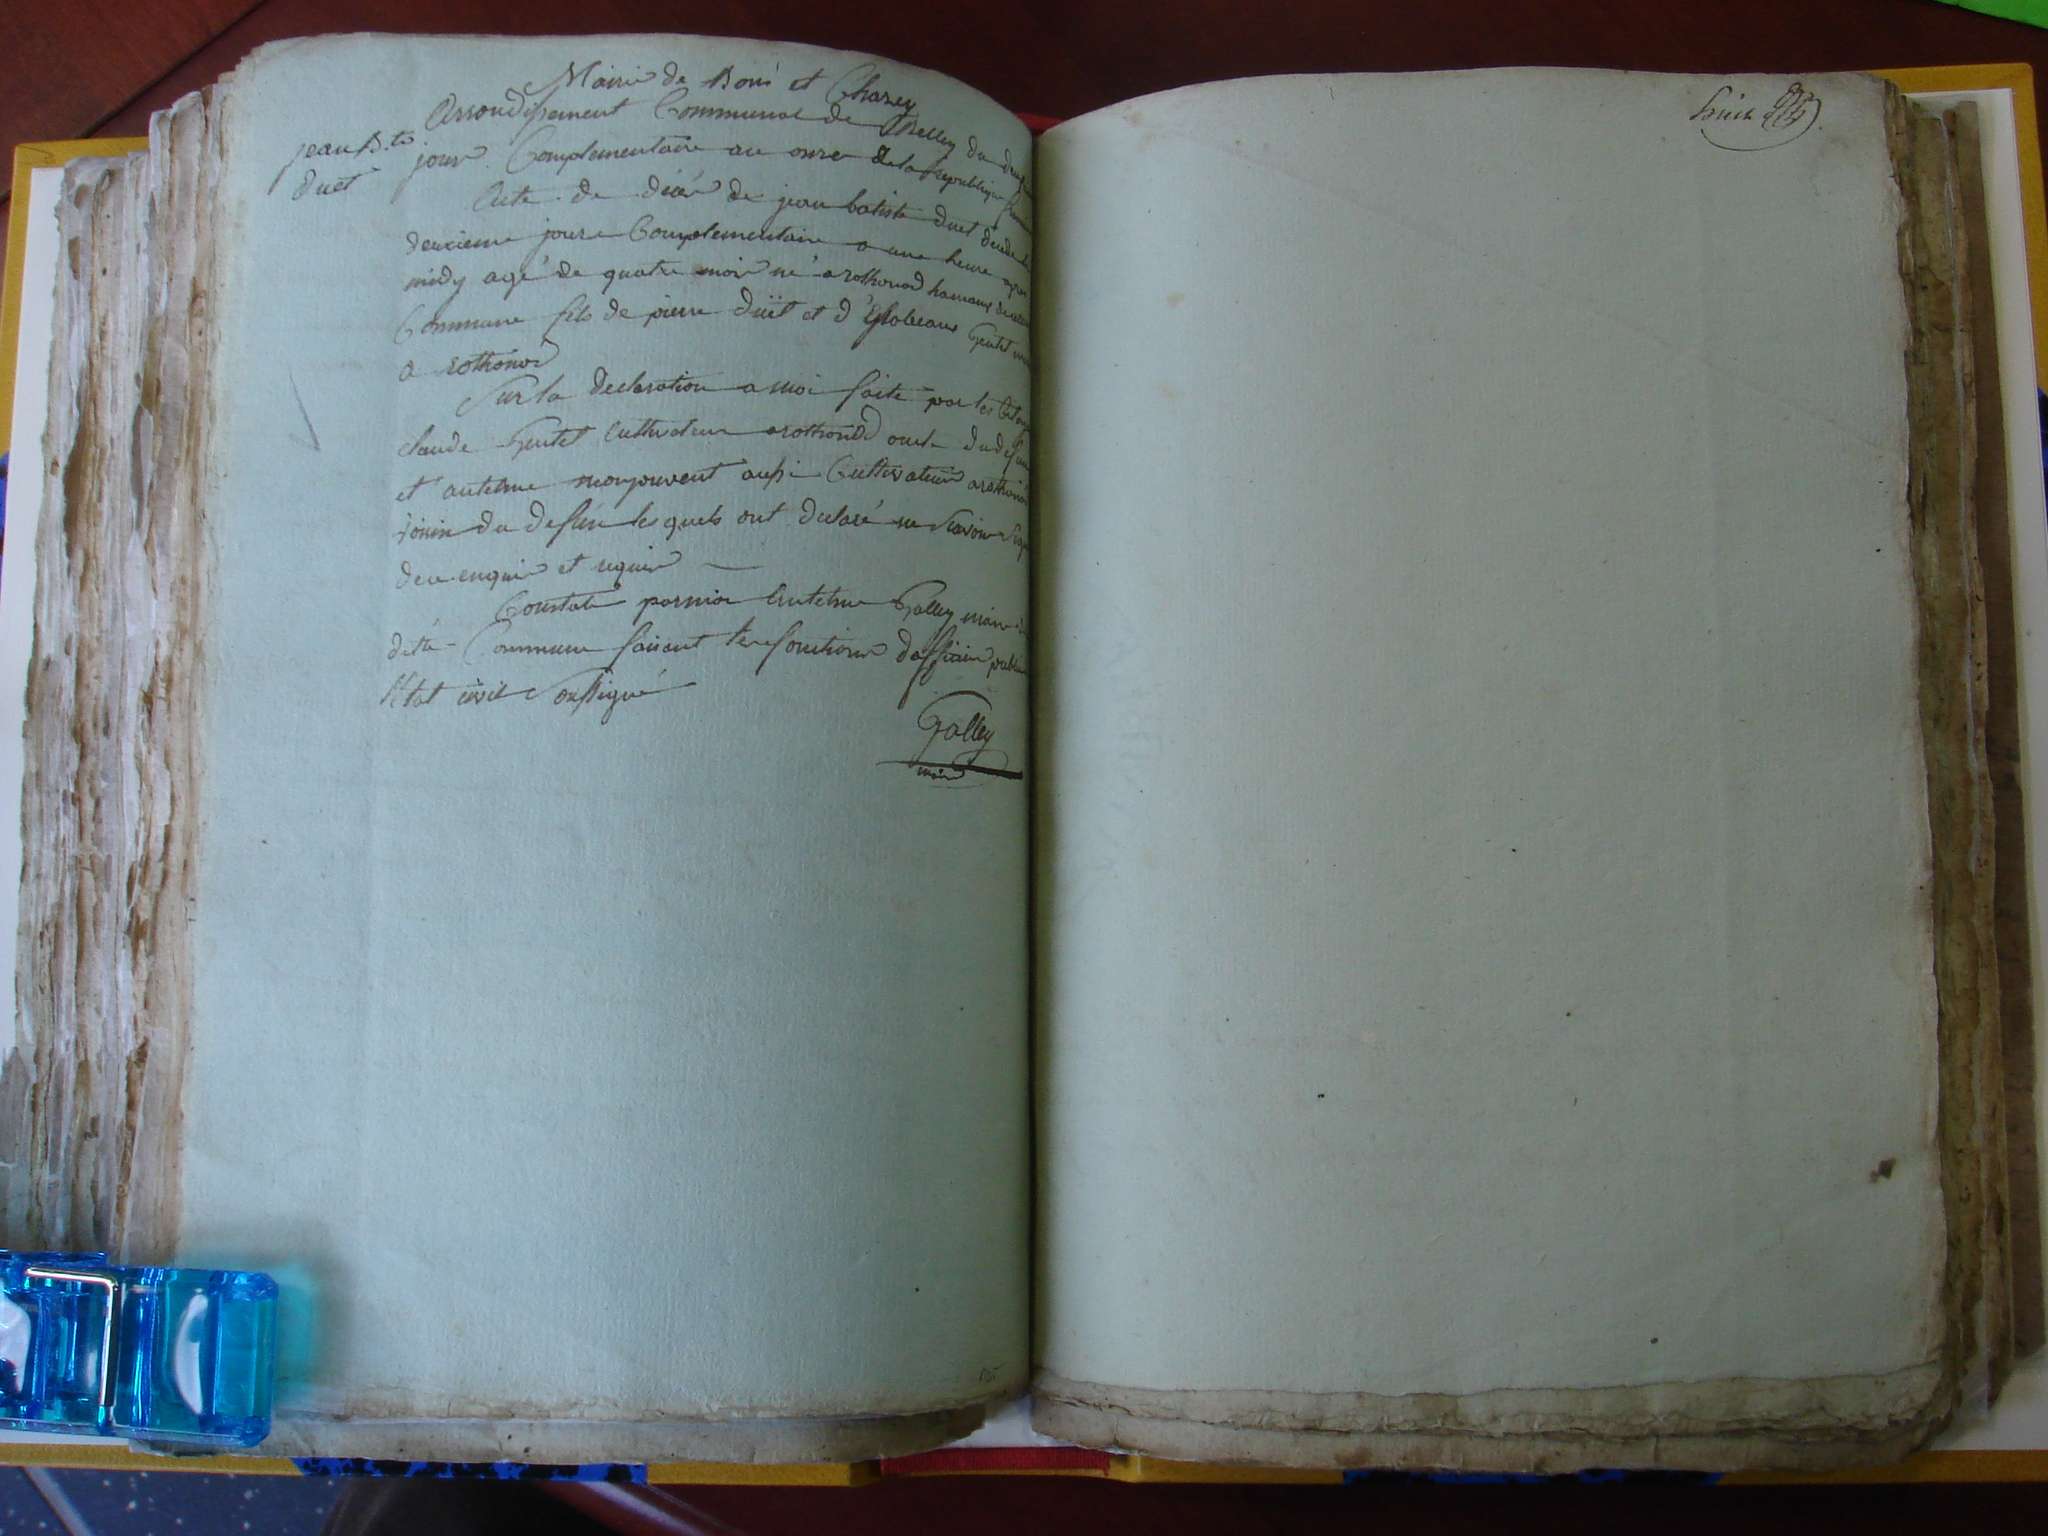 Mairie de Bons et Chazey
Arrondissement Communal de Belley du
jean B.te
duet
jour Complementaire an onze de la Republique
Acte de décés de jean batiste duet décédé
deuxieme jour Complementaire a une heure apres
midy agé de quatre mois né a rothonod hameaux de
Commune fils de pierre duet et d' Gentet
a rothonod
Sur la declaration a moi faite par les
claude Gentet Cultivateur a rothonod oncle du
et antelme monjouvent aussi Cultivateur a rothonod
voisin du defun lesquels ont declaré ne Scavoir
de ce enquis et requis
Constaté par moi Antelme Galley maire
ditte Commune faisant les fonctions d'officier public
l'état civil Soussigné
Galley
maire